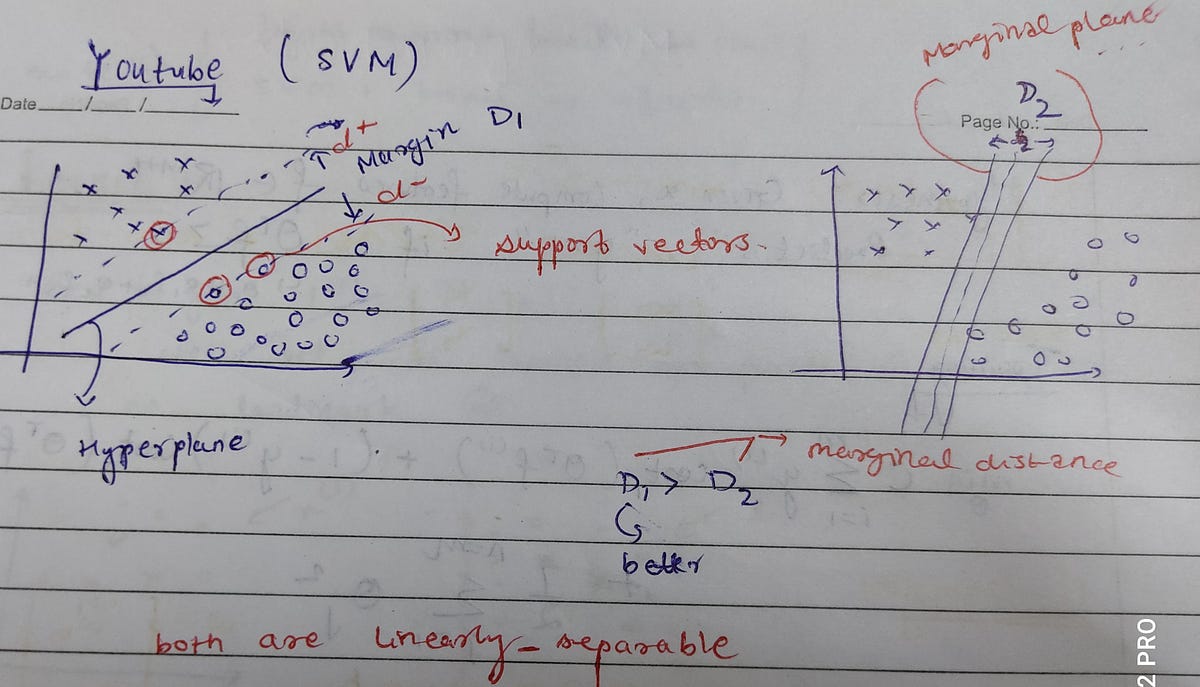 Youtube (SVM)
Date
Marginal plane
D2
Page No.:
d+
Margin D1
d-
support vectors.
Hyperplane
marginal distance
D1 > D2
better
both are linearly-separable
2 PRO